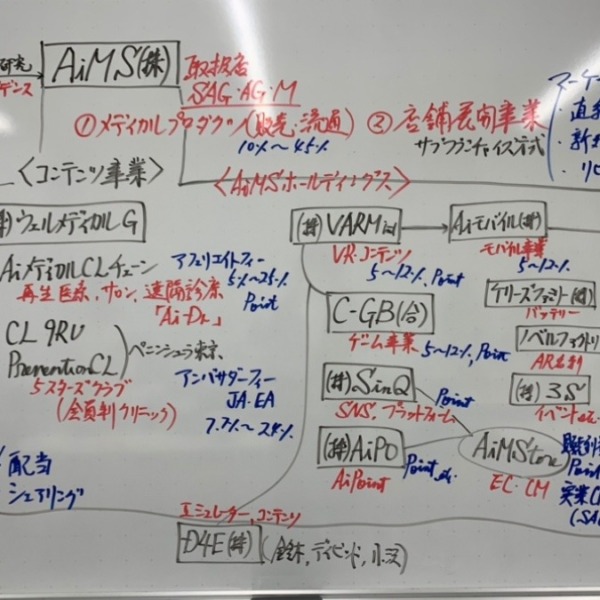 研究
AiMS(株)
取扱店
SAG・AG・M
デンス
①メディカルプロダクツ(販売・流通)
②店舗展開事業
10%~45%
サブフランチャイズ方式
マーケ
・直系
・新
・リ
<コンテンツ事業>
<AiMSホールディングス>
ウェルメディカルG
(株)VARM
Aiモバイル(株)
VR・コンテンツ
モバイル事業
5~12%, Point
5~12%
AiメディカルCLチェーン
アフェリエイトフィー
5%~25%
再生医療,サロン,遠隔診療
Point
「Ai-Dr」
C-GB(合)
ゲーム事業
5~12%, Point
ケリーズファミリー(株)
バッテリー
ノベルファクトリ
AR名刺
CL 9RU
PreventionCL
ペニンシュラ東京
5スターズクラブ
(会員制クリニック)
アンバサダーフィー
JA・EA
7.7%~24%
(株)SinQ
Point
SNS,プラットフォーム
(株)3S
イベント
(株)AiPO
Point
AiPoint
AiMStore
EC・CM
Point
実業
(SA
配当
シェアリング
エミュレーター,コンテンツ
D4E(株)